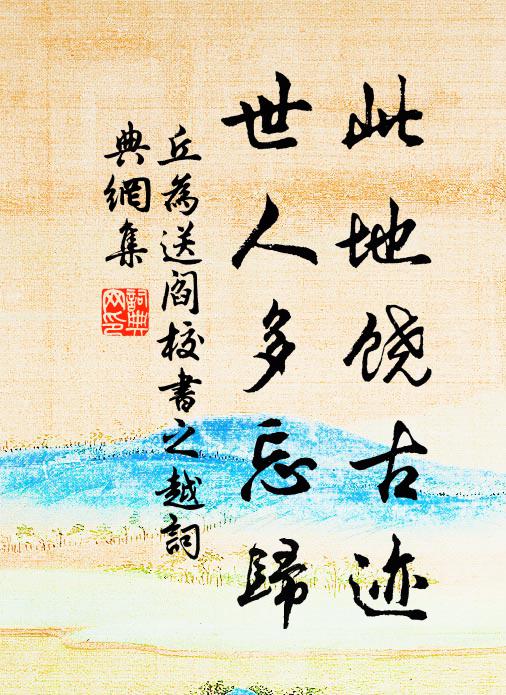 此地饶古迹
世人多忘歸
丘為送阎校書之越詞
典網集
詞典网印